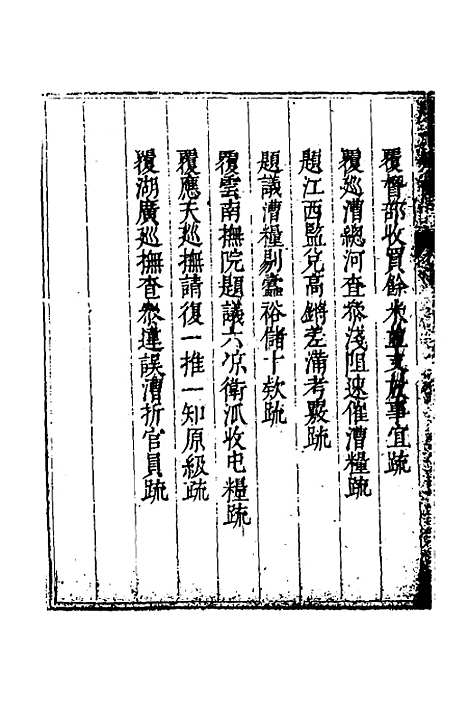 覆督部收買餘米事宜疏
覆巡漕總河查叅淺阻速催漕糧疏
題江西監兌高鏘差滿考覈疏
題議漕糧剔蠹裕儲十欵疏
覆雲南撫院題議六凉衛派收屯糧疏
覆應天巡撫請復一推一知原級疏
覆湖廣巡撫查叅違誤漕折官員疏